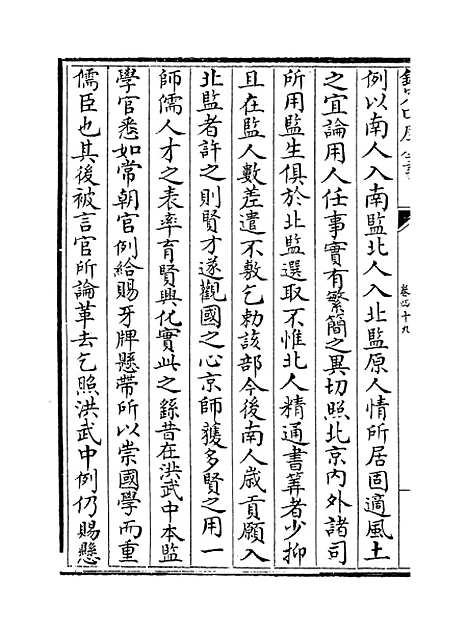 欽定四庫全書
卷四十九
例以南人入南監北人入北監原人情所居固適風土
之宜論用人任事實有繁簡之異切照北京內外諸司
所用監生俱於北監選取不惟北人精通書筭者少抑
且在監人數差遣不敷乞勅該部今後南人歲貢願入
北監者許之則賢才遂觀國之心京師獲多賢之用一
師儒人才之表率育賢興化實此之繇昔在洪武中本監
學官悉如常朝官例給賜牙牌懸帶所以崇國學而重
儒臣也其後被言官所論革去乞照洪武中例仍賜懸